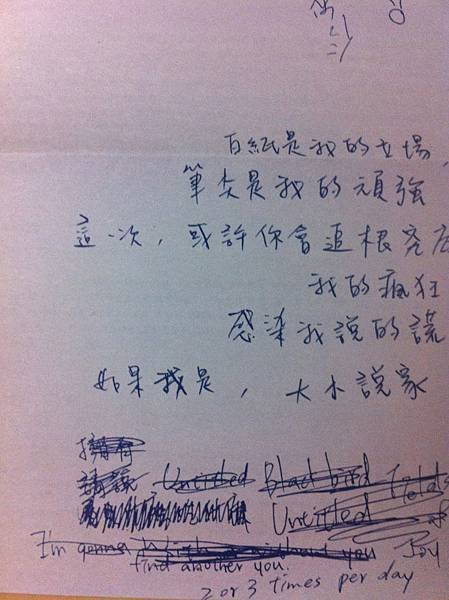 白紙是我的立場,
筆尖是我的頑強
這一次,或許你會追根究底
我的瘋狂
感染我說的謊
如果我是,大小說家
擁有
Untitled Blackbird Fields
Untitled of
I'm gonna without you Joy
find another you.
2 or 3 times per day